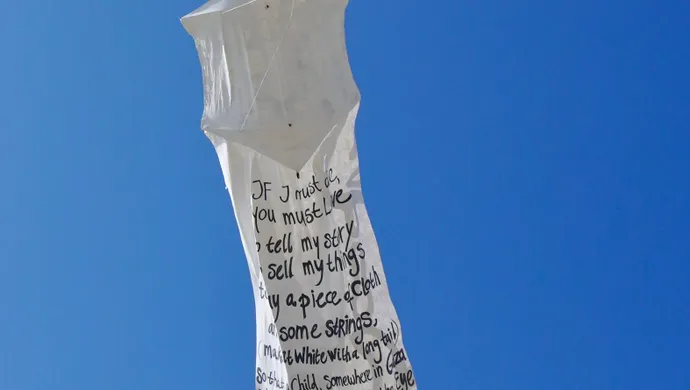 IF I must die,
you must Live
to tell my story
sell my things
buy a piece of Cloth
some Strings,
(make it White with a long tail)
so that a Child, somewhere in Gaza
the Eye